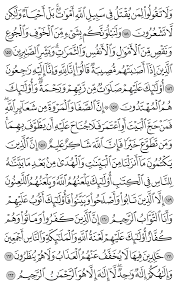 وَلَا تَقُولُوا۟ لِمَن يُقْتَلُ فِى سَبِيلِ ٱللَّهِ أَمْوَٰتٌۢ بَلْ أَحْيَآءٌ وَلَٰكِن
لَّا تَشْعُرُونَ ١٥٤ وَلَنَبْلُوَنَّكُم بِشَىْءٍ مِّنَ ٱلْخَوْفِ وَٱلْجُوعِ
وَنَقْصٍ مِّنَ ٱلْأَمْوَٰلِ وَٱلْأَنفُسِ وَٱلثَّمَرَٰتِ وَبَشِّرِ ٱلصَّٰبِرِينَ ١٥٥
ٱلَّذِينَ إِذَآ أَصَٰبَتْهُم مُّصِيبَةٌ قَالُوٓا۟ إِنَّا لِلَّهِ وَإِنَّآ إِلَيْهِ رَٰجِعُونَ ١٥٦
أُو۟لَٰٓئِكَ عَلَيْهِمْ صَلَوَٰتٌ مِّن رَّبِّهِمْ وَرَحْمَةٌ وَأُو۟لَٰٓئِكَ
هُمُ ٱلْمُهْتَدُونَ ١٥٧ إِنَّ ٱلصَّفَا وَٱلْمَرْوَةَ مِن شَعَآئِرِ ٱللَّهِ
فَمَنْ حَجَّ ٱلْبَيْتَ أَوِ ٱعْتَمَرَ فَلَا جُنَاحَ عَلَيْهِ أَن يَطَّوَّفَ بِهِمَا
وَمَن تَطَوَّعَ خَيْرًا فَإِنَّ ٱللَّهَ شَاكِرٌ عَلِيمٌ ١٥٨ إِنَّ ٱلَّذِينَ
يَكْتُمُونَ مَآ أَنزَلْنَا مِنَ ٱلْبَيِّنَٰتِ وَٱلْهُدَىٰ مِنۢ بَعْدِ مَا بَيَّنَّٰهُ
لِلنَّاسِ فِى ٱلْكِتَٰبِ أُو۟لَٰٓئِكَ يَلْعَنُهُمُ ٱللَّهُ وَيَلْعَنُهُمُ ٱللَّٰعِنُونَ
١٥٩ إِلَّا ٱلَّذِينَ تَابُوا۟ وَأَصْلَحُوا۟ وَبَيَّنُوا۟ فَأُو۟لَٰٓئِكَ أَتُوبُ عَلَيْهِمْ
وَأَنَا ٱلتَّوَّابُ ٱلرَّحِيمُ ١٦٠ إِنَّ ٱلَّذِينَ كَفَرُوا۟ وَمَاتُوا۟ وَهُمْ
كُفَّارٌ أُو۟لَٰٓئِكَ عَلَيْهِمْ لَعْنَةُ ٱللَّهِ وَٱلْمَلَٰٓئِكَةِ وَٱلنَّاسِ أَجْمَعِينَ
١٦١ خَٰلِدِينَ فِيهَا لَا يُخَفَّفُ عَنْهُمُ ٱلْعَذَابُ وَلَا هُمْ يُنظَرُونَ ١٦٢
وَإِلَٰهُكُمْ إِلَٰهٌ وَٰحِدٌ لَّآ إِلَٰهَ إِلَّا هُوَ ٱلرَّحْمَٰنُ ٱلرَّحِيمُ ١٦٣